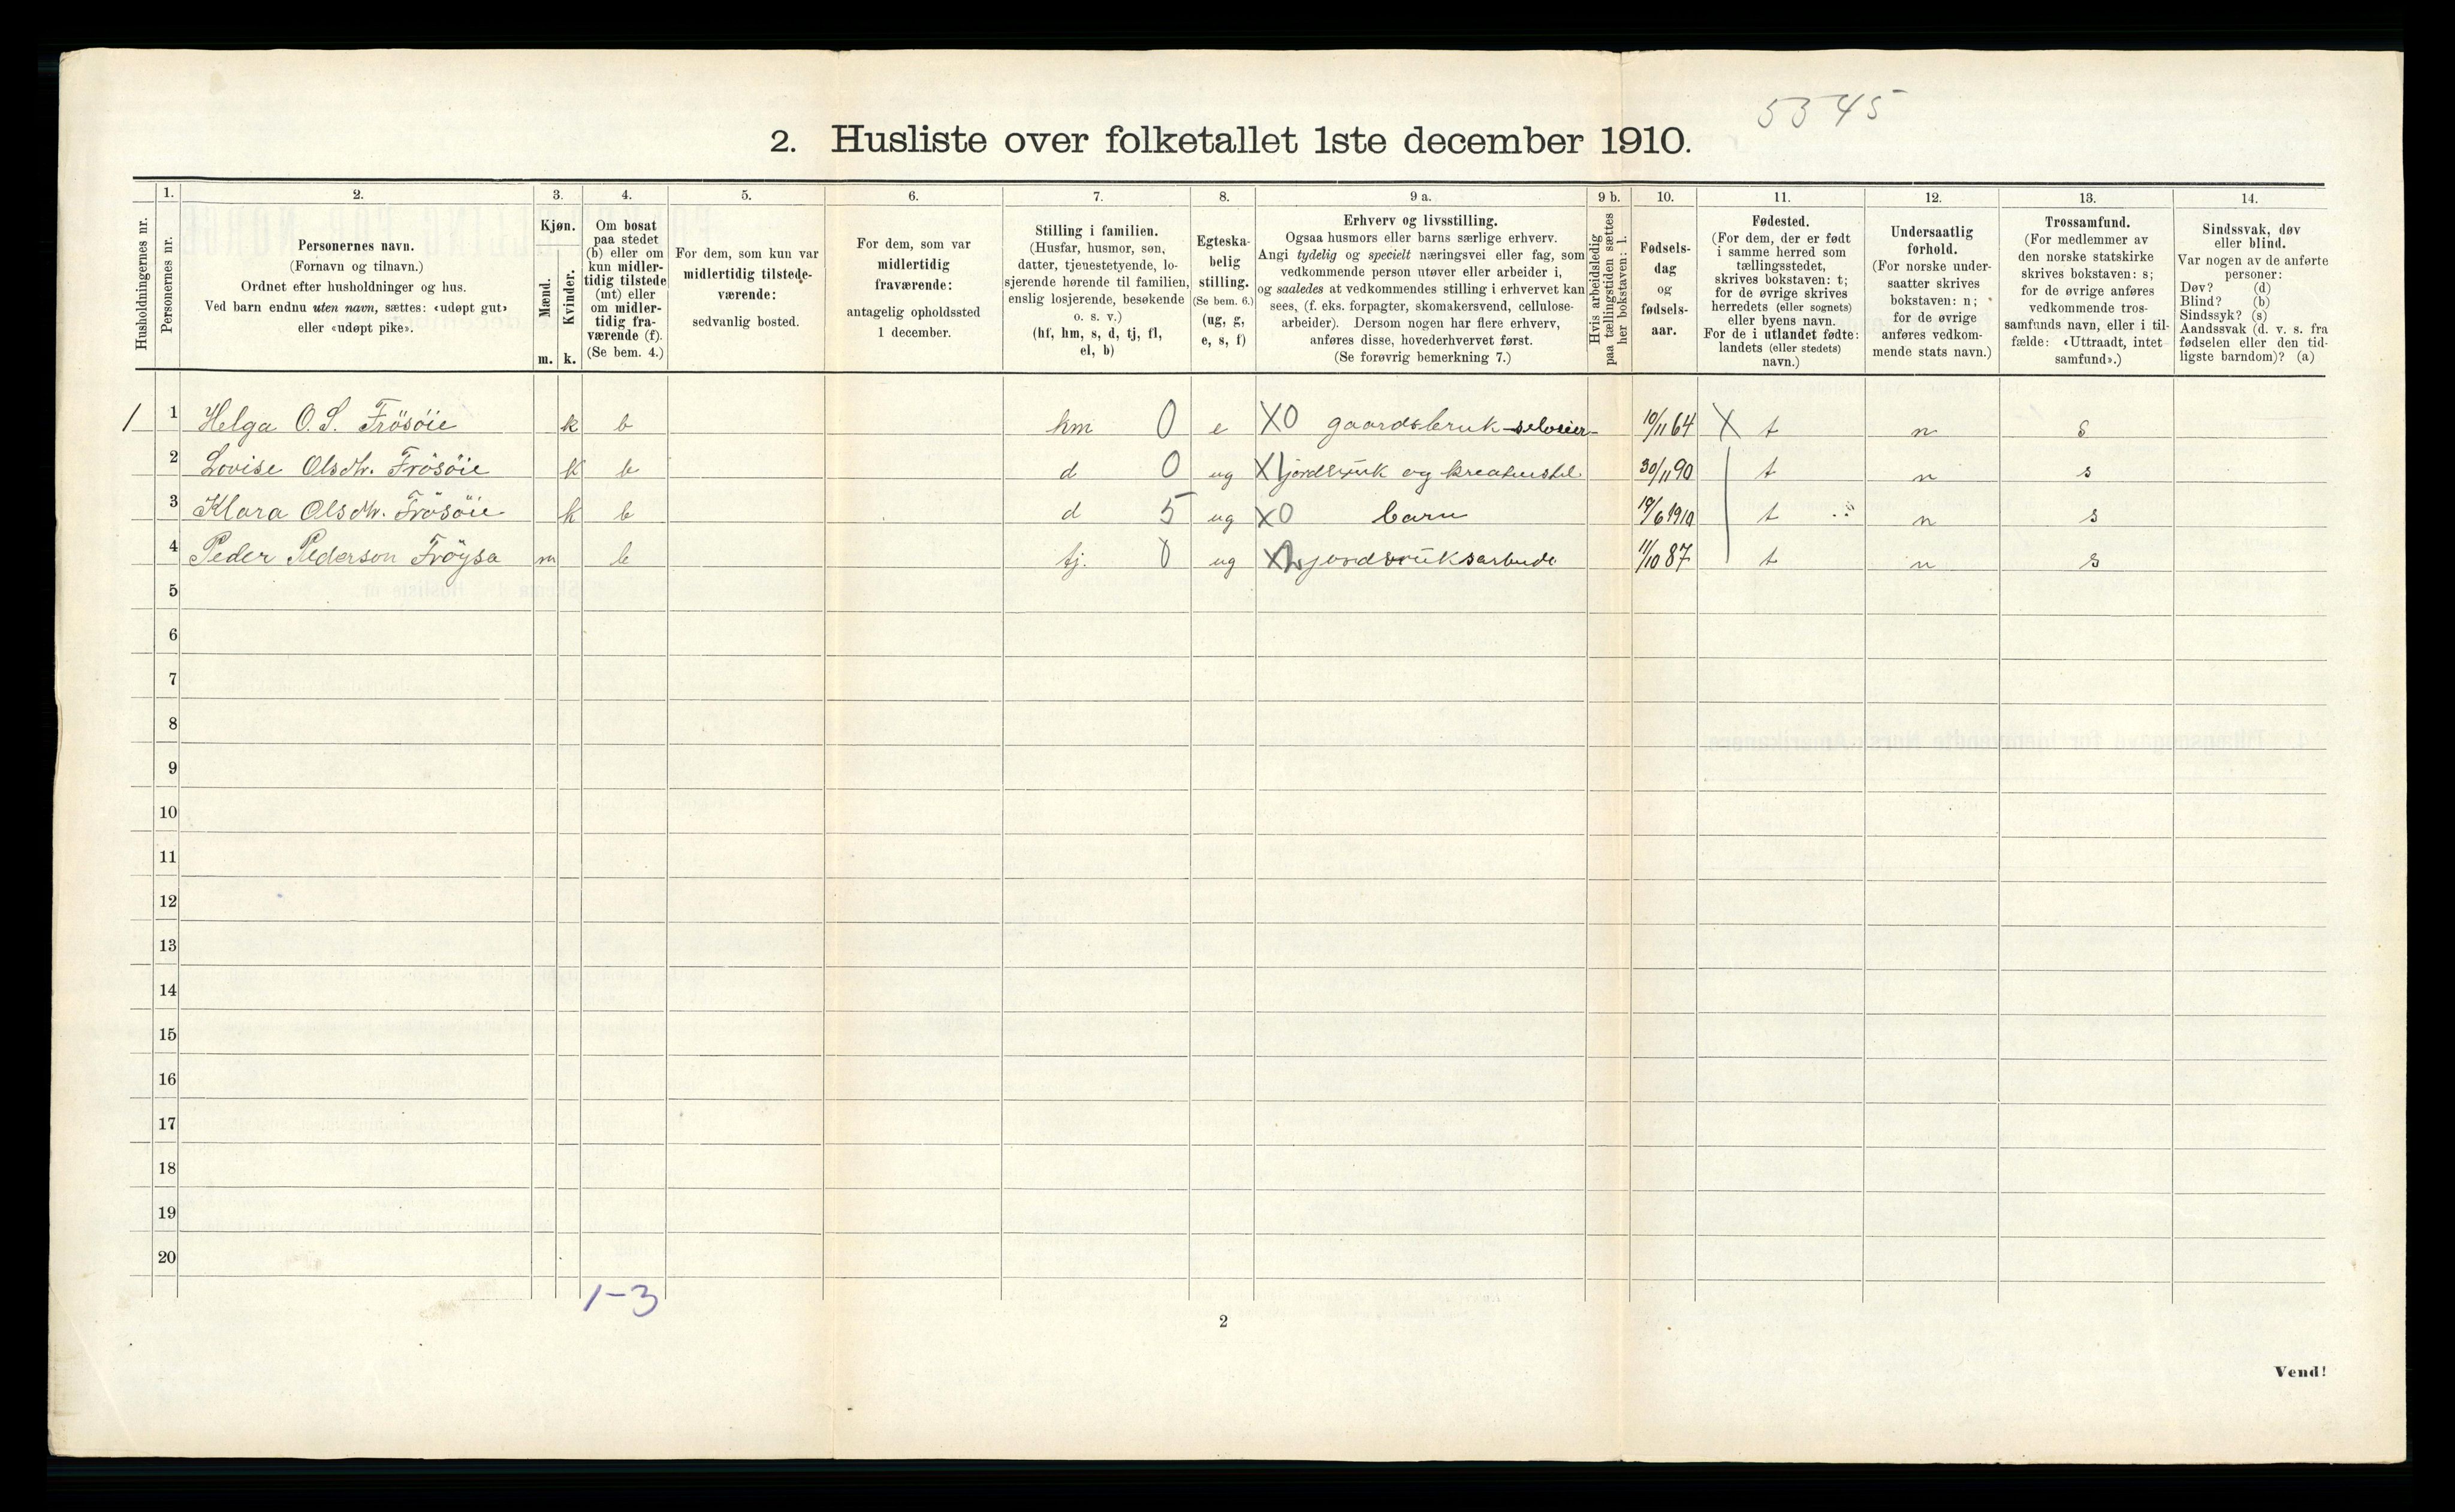 5345
2. Husliste over folketallet 1ste december 1910.
Husholdningernes nr.
1.
Personernes nr.
2.
Personernes navn.
(Fornavn og tilnavn.)
Ordnet efter husholdninger og hus.
Ved barn endnu uten navn, sættes: «udøpt gut»
eller «udøpt pike».
3.
Kjøn.
Mænd.
Kvinder.
m. k.
4.
Om bosat
paa stedet
(b) eller om
kun midler-
tidig tilstede
(mt) eller
om midler-
tidig fra-
værende (f).
(Se bem. 4.)
5.
For dem, som kun var
midlertidig tilstede-
værende:
sedvanlig bosted.
6.
For dem, som var
midlertidig
fraværende:
antagelig opholdssted
1 december.
7.
Stilling i familien.
(Husfar, husmor, søn,
datter, tjenestetyende, lo-
sjerende hørende til familien,
enslig losjerende, besøkende
o. s. v.)
(hf, hm, s, d, tj, fl,
el, b)
8.
Egteska-
belig
stilling.
(Se bem. 6.)
(ug, g,
e, s, f)
9 a.
Erhverv og livsstilling.
Ogsaa husmors eller barns særlige erhverv.
Angi tydelig og specielt næringsvei eller fag, som
vedkommende person utøver eller arbeider i,
og saaledes at vedkommendes stilling i erhvervet kan
sees, (f. eks. forpagter, skomakersvend, cellulose-
arbeider). Dersom nogen har flere erhverv,
anføres disse, hovederhvervet først.
(Se forøvrig bemerkning 7.)
9 b.
Hvis arbeidsledig
paa tællingstiden sættes
her bokstaven: l.
10.
Fødsels-
dag
og
fødsels-
aar.
11.
Fødested.
(For dem, der er født
i samme herred som
tællingsstedet,
skrives bokstaven: t;
for de øvrige skrives
herredets (eller sognets)
eller byens navn.
For de i utlandet fødte:
landets (eller stedets)
navn.)
12.
Undersaatlig
forhold.
(For norske under-
saatter skrives
bokstaven: n;
for de øvrige
anføres vedkom-
mende stats navn.)
13.
Trossamfund.
(For medlemmer av
den norske statskirke
skrives bokstaven: s;
for de øvrige anføres
vedkommende tros-
samfunds navn, eller i til-
fælde: «Uttraadt, intet
samfund».)
14.
Sindssvak, døv
eller blind.
Var nogen av de anførte
personer:
Døv? (d)
Blind? (b)
Sindssyk? (s)
Aandssvak (d. v. s. fra
fødselen eller den tid-
ligste barndom)? (a)
1 1 Helga O. S. Frösöie k b hm 0 e X0 gaardsbruk selveier 10/11 64 X t n s
2 Lovise Olsdtr. Frösöie k b d 0 ug X jordbruk og kreaturstel 30/11 90 t n s
3 Klara Olsdtr. Frösöie k b d 5 ug X0 barn 19/6 1910 t n s
4 Peder Pederson Fröysa m b tj. 0 ug X jordbruksarbeide 11/10 87 t n s
5
6
7
8
9
10
11
12
13
14
15
16
17
18
19
20
1-3
2
Vend!